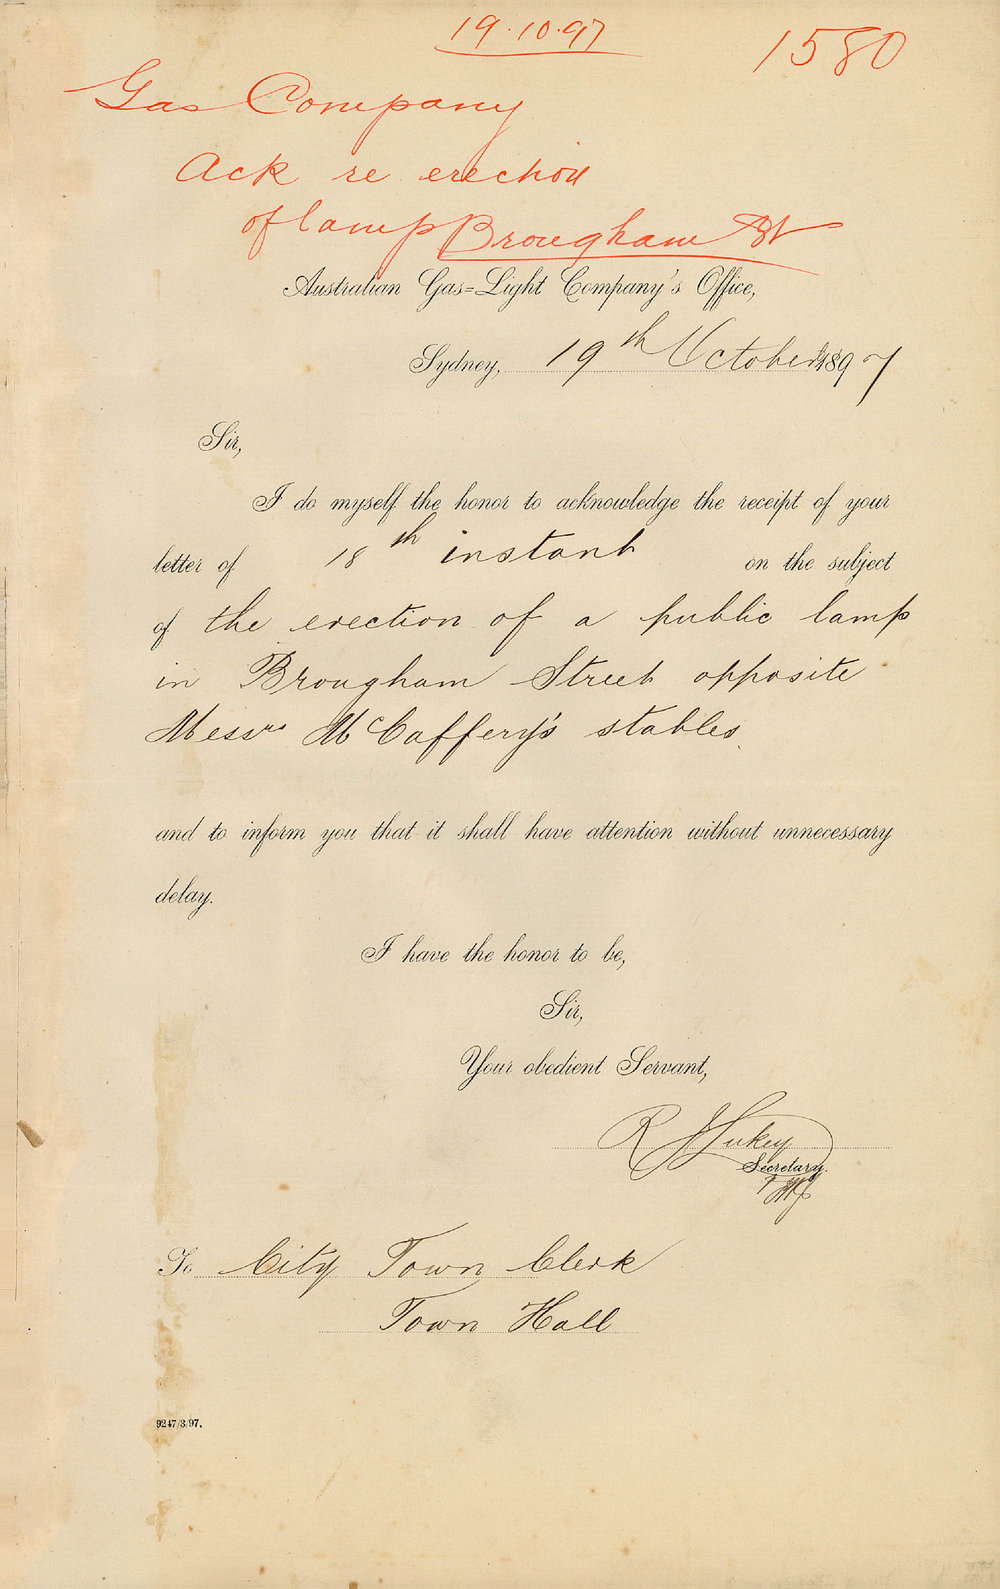 19.10.97
1580
Gas Company
Ack re erection
of lamp Brougham St
Australian Gas=Light Company's Office,
Sydney, 19th October 1897
Sir,
I do myself the honor to acknowledge the receipt of your
letter of 18th instant on the subject
of the erection of a public lamp
in Brougham Street opposite
Messrs McCaffery's stables
and to inform you that it shall have attention without unnecessary
delay.
I have the honor to be,
Sir,
Your obedient Servant,
R J Lukey
Secretary.
To City Town Clerk
Town Hall
9247/3/97.